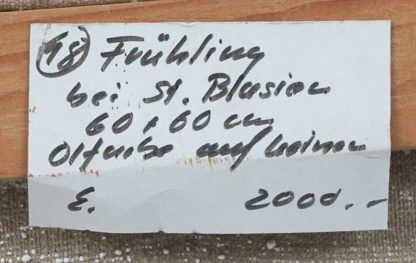 48 Frühling
bei St. Blasien
60 x 60 cm
Ölfarbe auf Leinen
E. 2000.-